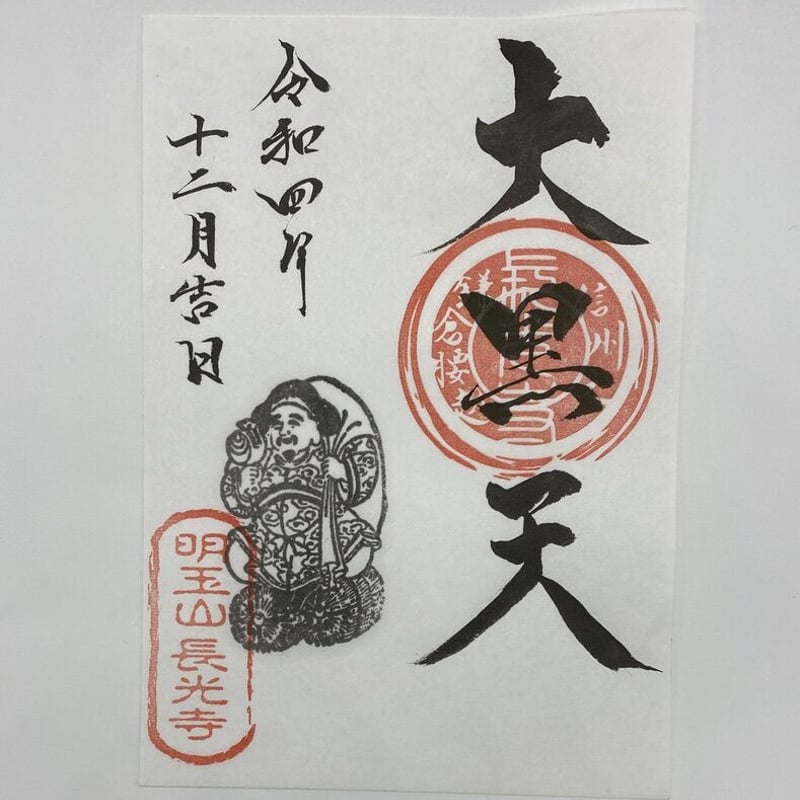 大黒天
信州
長光寺
令和四年
十二月吉日
明玉山長光寺